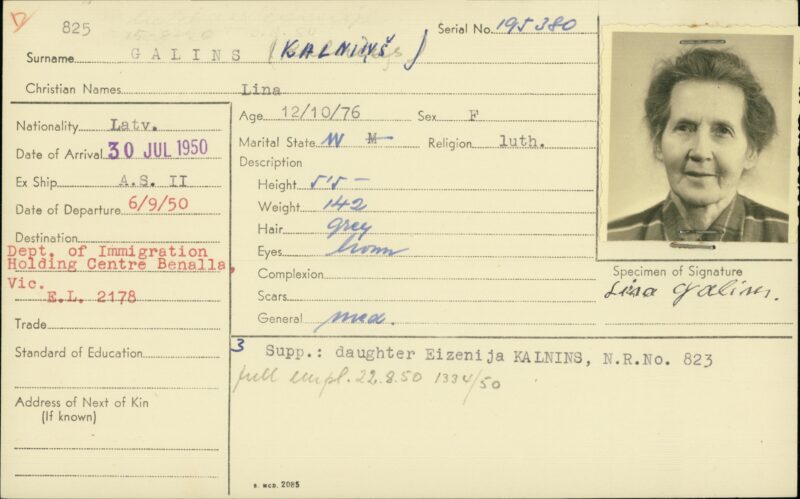 825
Serial No. 195380
Surname GALINS (KALNIŅŠ)
Christian Names Lina
Nationality Latv.
Date of Arrival 30 JUL 1950
Ex Ship A.S. II
Date of Departure 6/9/50
Destination
Dept. of Immigration
Holding Centre Benalla,
Vic.
E.L. 2178
Trade
Standard of Education
Address of Next of Kin
(If known)
Age 12/10/76 Sex F
Marital State W M Religion luth.
Description
Height 5'5 -
Weight 142
Hair grey
Eyes brown
Complexion
Scars
General med.
Specimen of Signature
Lina Galins.
3 Supp.: daughter Eizenija KALNINS, N.R.No. 823
full empl. 22.8.50 1334/50
B. MCD. 2085